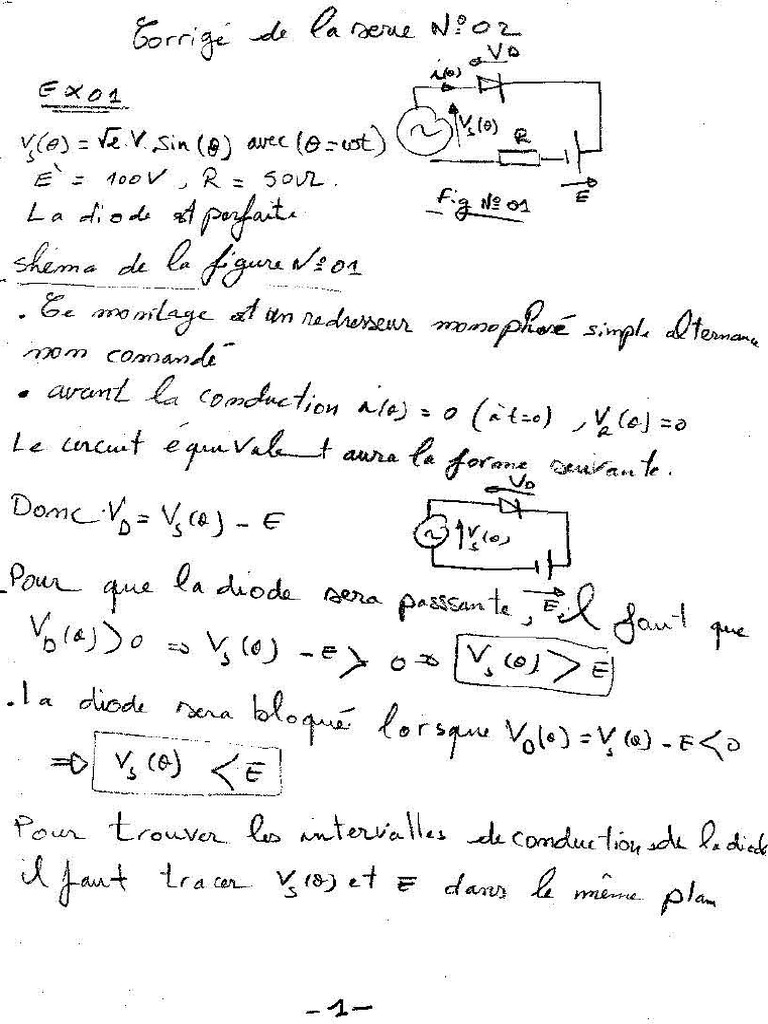 Corrigé de la serie N°02
EX01
Vs(θ) = √2.V. Sin(θ) avec (θ=ωt)
E = 100V, R = 50Ω.
La diode est parfaite
i(θ)
VD
Vs(θ)
R
E
Fig N°01
shéma de la figure N°01
. Ce montage est un redresseur monophasé simple alternance
non comandé
• avant la conduction i(θ) = 0 (à t=0), VR(θ) = 0
Le circuit équivalent aura la forme suivante.
Donc VD = Vs(θ) - E
VD
Vs(θ)
E
Pour que la diode sera passsante, il faut que
VD(θ) > 0 ⇒ Vs(θ) - E > 0 ⇒ Vs(θ) > E
. la diode sera bloqué lorsque VD(θ) = Vs(θ) - E < 0
⇒ Vs(θ) < E
Pour trouver les intervalles de conduction de la diode
il faut tracer Vs(θ) et E dans le même plan
-1-